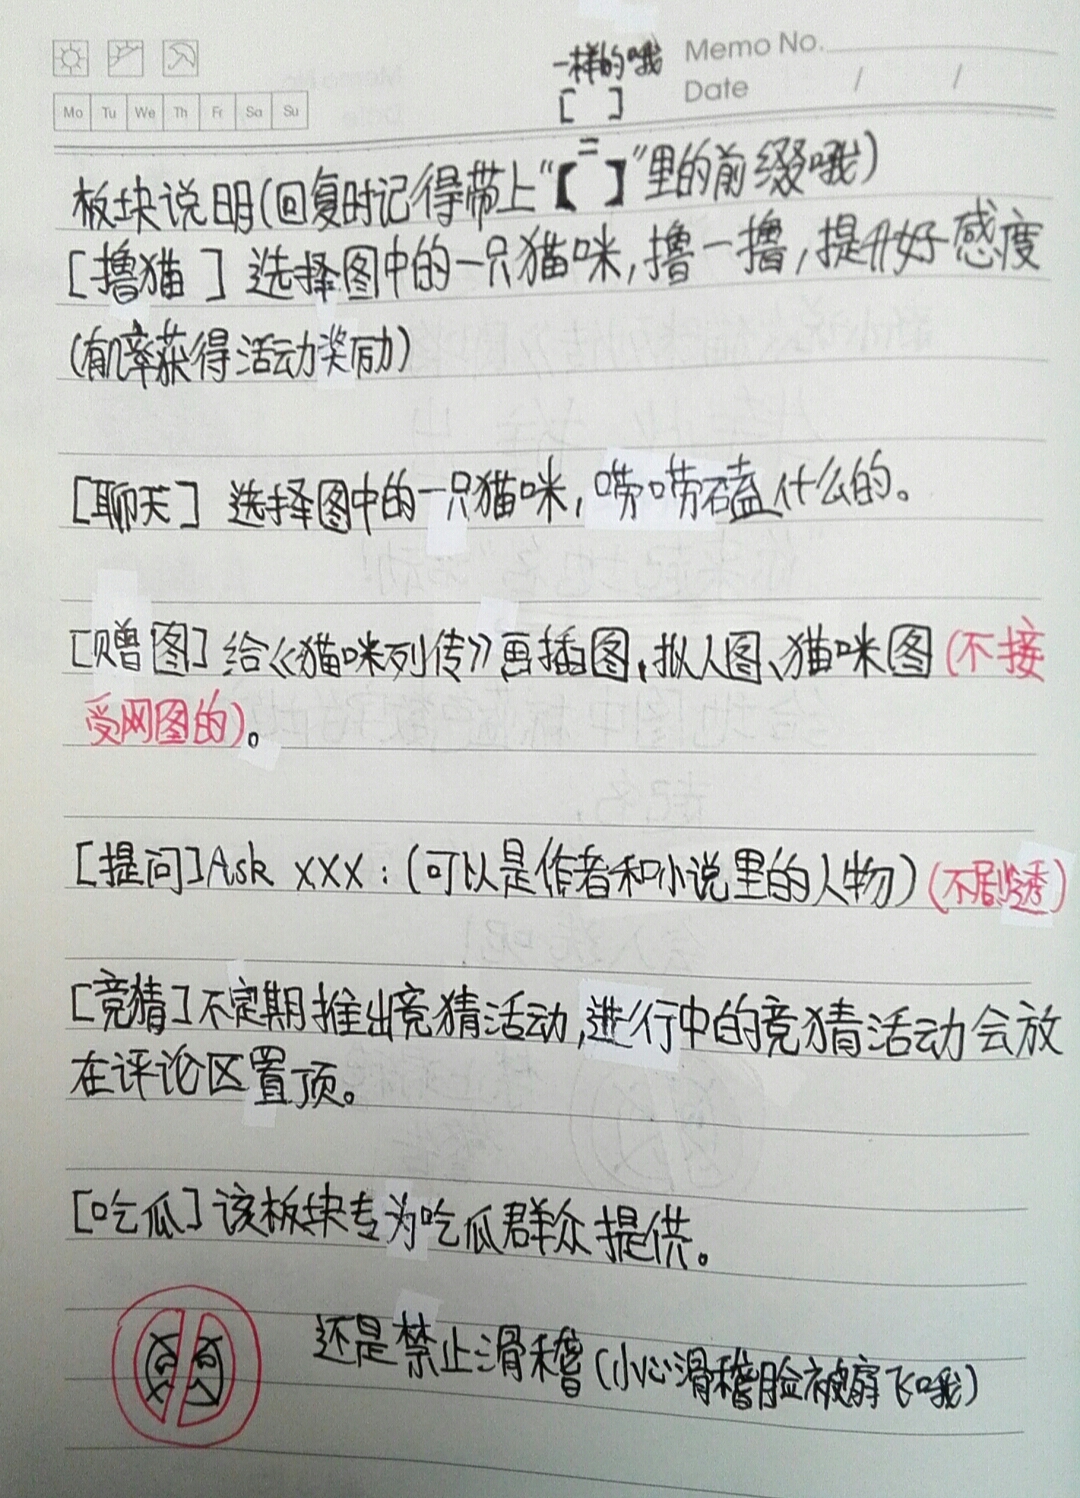 Memo No.
Date / /
Mo Tu We Th Fr Sa Su
一样的哦
[ ]
=
板块说明(回复时记得带上“【 】”里的前缀哦)
[撸猫] 选择图中的一只猫咪,撸一撸,提升好感度
(有几率获得活动奖励)
[聊天] 选择图中的一只猫咪,唠唠嗑什么的。
[赠图] 给《猫咪列传》画插图、拟人图、猫咪图(不接
受网图的)。
[提问]Ask XXX:(可以是作者和小说里的人物)(不剧透)
[竞猜]不定期推出竞猜活动,进行中的竞猜活动会放
在评论区置顶。
[吃瓜]该板块专为吃瓜群众提供。
还是禁止滑稽(小心滑稽脸被扇飞哦)